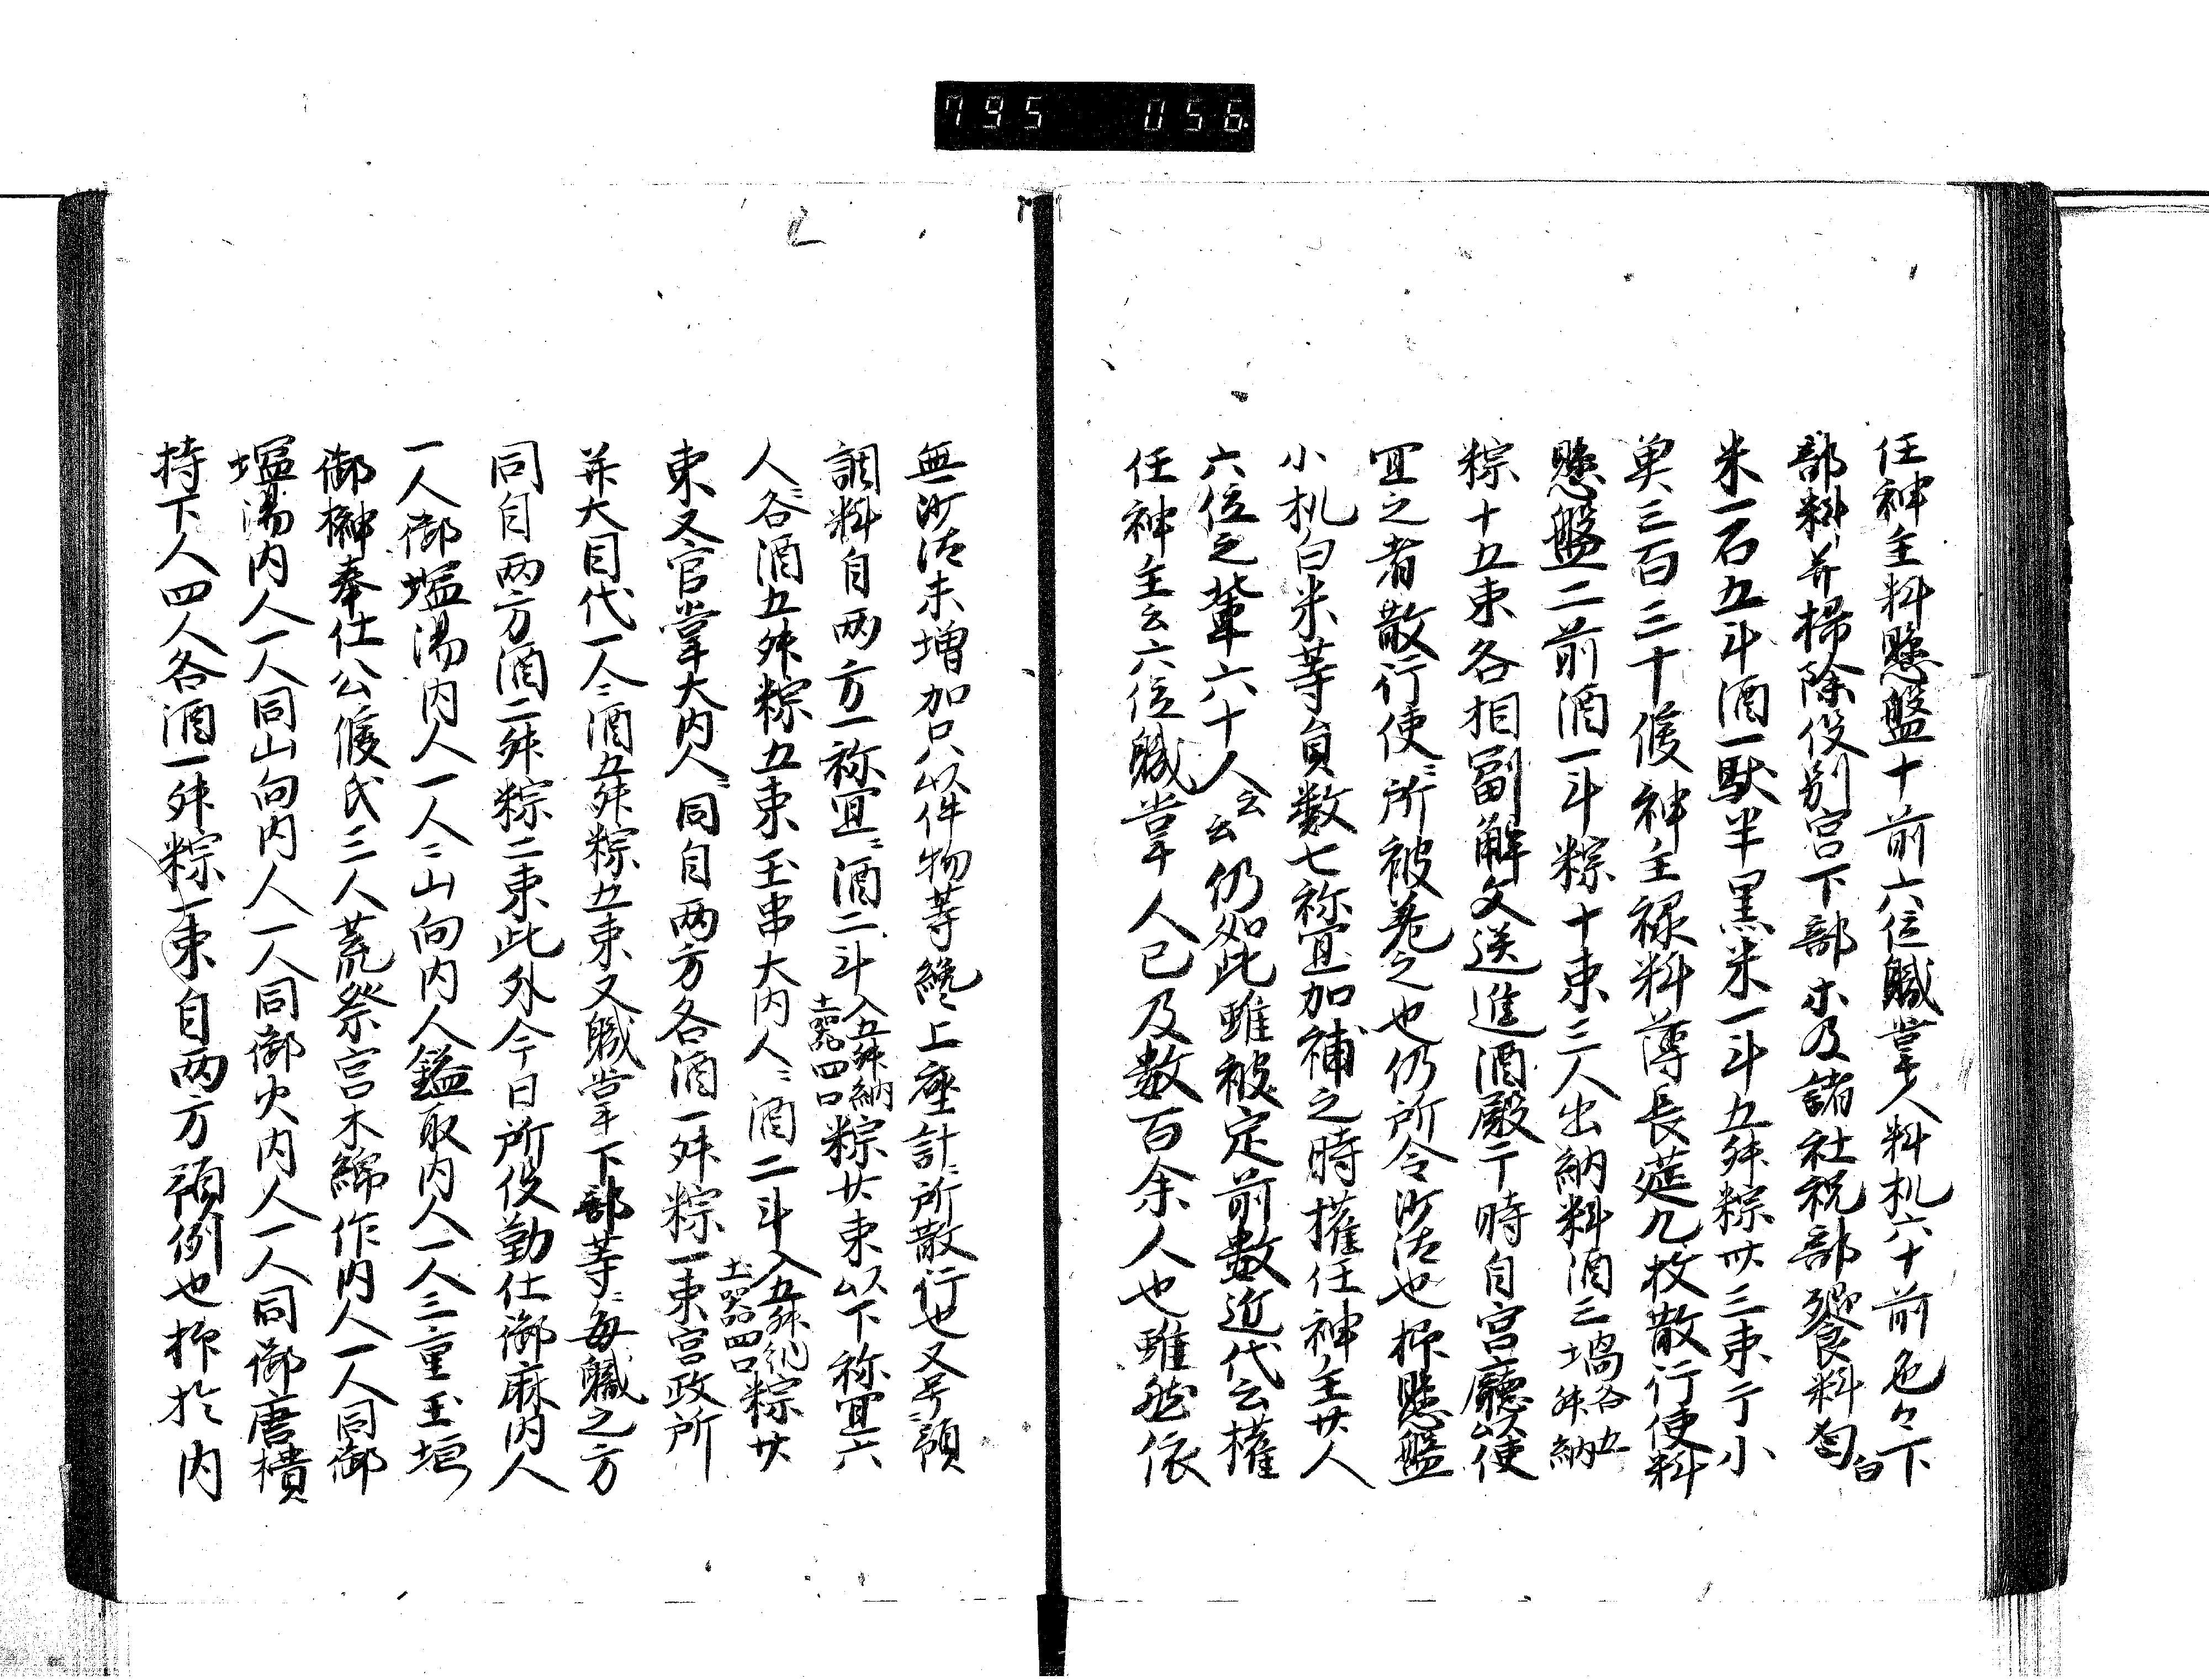 795 056
任神主料懸盤十前六位職掌人料机六十前色々下
部料并掃除役別宮下部ホ及諸社祝部饗料匂白
米一石五斗酒一駄半黒米一斗五舛粽卅三束亍小
莫三百三十隻神主禄料薄長莚九枚散行使料
懸盤二前酒一斗粽十束三人出納料酒三堝各五舛納
粽十五束各相副解文送進酒殿亍時自宮廳以便
宜之者散行使ニ所被差之也仍所令沙汰也抑懸盤
小机白米等員数七祢宜加補之時権任神主廿人
六位之輩六十人云云仍如此雖被定前数近代云権
任神主云六位職掌人已及数百余人也雖然依
無沙汰未増加只以件物等纔上座計ニ所散行也又号預
調料自両方一祢宜ニ酒二斗入五舛納土器四口粽廿束以下祢宜六
人各ニ酒五舛粽五束玉串大内人ニ酒二斗入五舛瓫土器四口粽廿
束又官掌大内人ニ同自両方各酒一舛粽一束宮政所
并大目代一人ニ酒五舛粽五束又職掌下部等ニ毎職之方
同自両方酒二舛粽二束此外今日所役勤仕御麻内人
一人御塩湯内人一人ニ山向内人鎰取内人一人三重玉垣
御榊奉仕公俊氏三人荒祭宮木綿作内人一人同御
塩湯内人一人同山向内人一人同御火内人一人同御唐樻
持下人四人各酒一舛粽一束自両方預例也抑於内